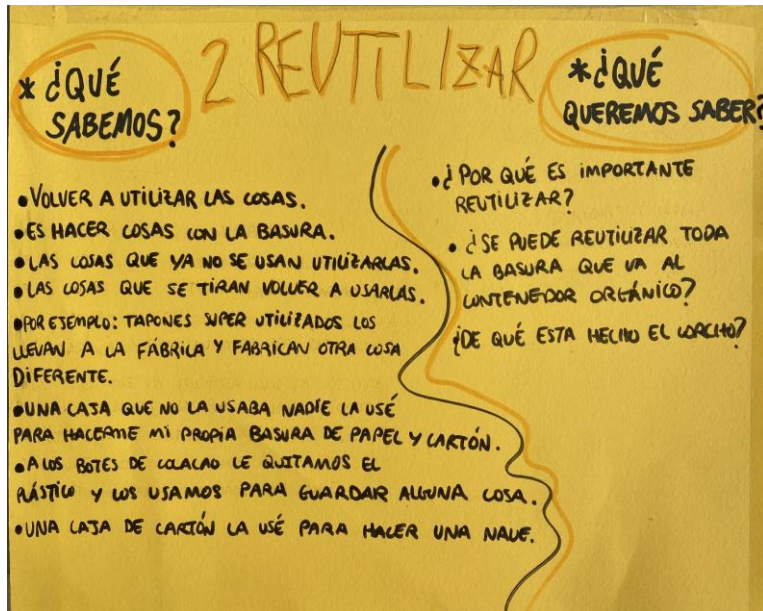 2 REUTILIZAR
* ¿QUÉ
SABEMOS?
• VOLVER A UTILIZAR LAS COSAS.
• ES HACER COSAS CON LA BASURA.
• LAS COSAS QUE YA NO SE USAN UTILIZARLAS.
• LAS COSAS QUE SE TIRAN VOLVER A USARLAS.
• POR EJEMPLO: TAPONES SUPER UTILIZADOS LOS
LLEVAN A LA FÁBRICA Y FABRICAN OTRA COSA
DIFERENTE.
• UNA CAJA QUE NO LA USABA NADIE LA USÉ
PARA HACERME MI PROPIA BASURA DE PAPEL Y CARTÓN.
• A LOS BOTES DE COLACAO LE QUITAMOS EL
PLÁSTICO Y LOS USAMOS PARA GUARDAR ALGUNA COSA.
• UNA CAJA DE CARTÓN LA USÉ PARA HACER UNA NAVE.
* ¿QUÉ
QUEREMOS SABER?
• ¿POR QUÉ ES IMPORTANTE
REUTILIZAR?
• ¿SE PUEDE REUTILIZAR TODA
LA BASURA QUE VA AL
CONTENEDOR ORGÁNICO?
¿DE QUÉ ESTA HECHO EL CORCHO?